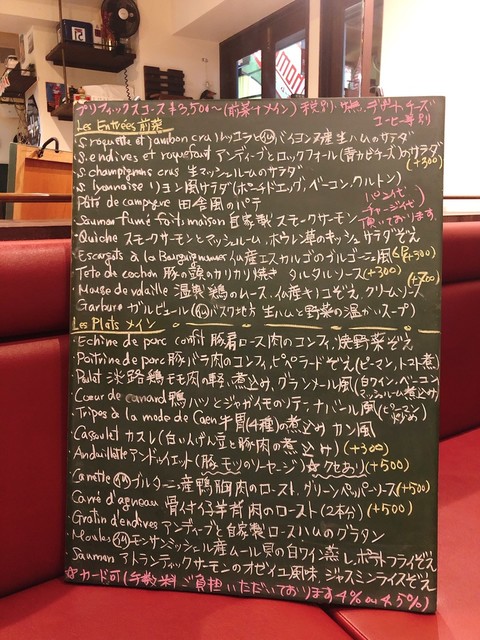 プリフィックスコース ¥3,500〜(前菜+メイン) 税別 デザート、チーズ
コーヒー別
Les Entrées 前菜
・S. roquette et jambon cru ルッコラとバイヨンヌ産生ハムのサラダ
・S. endives et roquefort アンディーブとロックフォール(青カビチーズ)のサラダ (+300)
・S. champignons crus 生マッシュルームのサラダ
・S. lyonnaise リヨン風サラダ(ポーチドエッグ、ベーコン、クルトン)
・Pâté de campagne 田舎風のパテ
パン代
チャージ代
頂いております。
・Saumon fumé faits maison 自家製スモークサーモン
・Quiche スモークサーモンとマッシュルーム、ホウレン草のキッシュ サラダぞえ
・Escargots à la Bourguignonne 仏産エスカルゴのブルゴーニュ風 (+300)
・Tete de cochon 豚の頭のカリカリ焼き タルタルソース (+300)
・Mousse de volaille 温製鶏のムース、仏産キノコぞえ、クリームソース
・Garbure ガルビュール(バスク地方 生ハムと野菜の温かいスープ)
Les Plats メイン
・Echine de porc confit 豚肩ロース肉のコンフィ、焼野菜ぞえ
・Poitrine de porc 豚バラ肉のコンフィ、ピペラードぞえ(ピーマン、トマト煮)
・Poulet 淡路鶏モモ肉の軽い煮込み、グランメール風(白ワイン、ベーコン、マッシュルーム煮込み)
・Coeur de canard 鴨ハツとジャガイモのソテー ナバール風(ピーマン炒め)
・Tripes à la mode de Caen 牛胃(4種)の煮込み カン風
・Cassoulet カスレ(白いんげん豆と豚肉の煮込み) (+300)
・Andouillette アンドゥイエット(豚モツのソーセージ) ☆クセあり (+500)
・Canette ブルターニュ産鴨胸肉のロースト、グリーンペッパーソース (+500)
・Carré d'agneau 骨付仔羊背肉のロースト(2本分) (+500)
・Gratin d'endives アンディーブと自家製ロースハムのグラタン
・Moules モンサンミッシェル産ムール貝の白ワイン蒸し、ポテトフライぞえ
・Saumon アトランティックサーモンのオゼイユ風味、ジャスミンライスぞえ
☆カード可(手数料ご負担いただいております 4% or 4.5%)